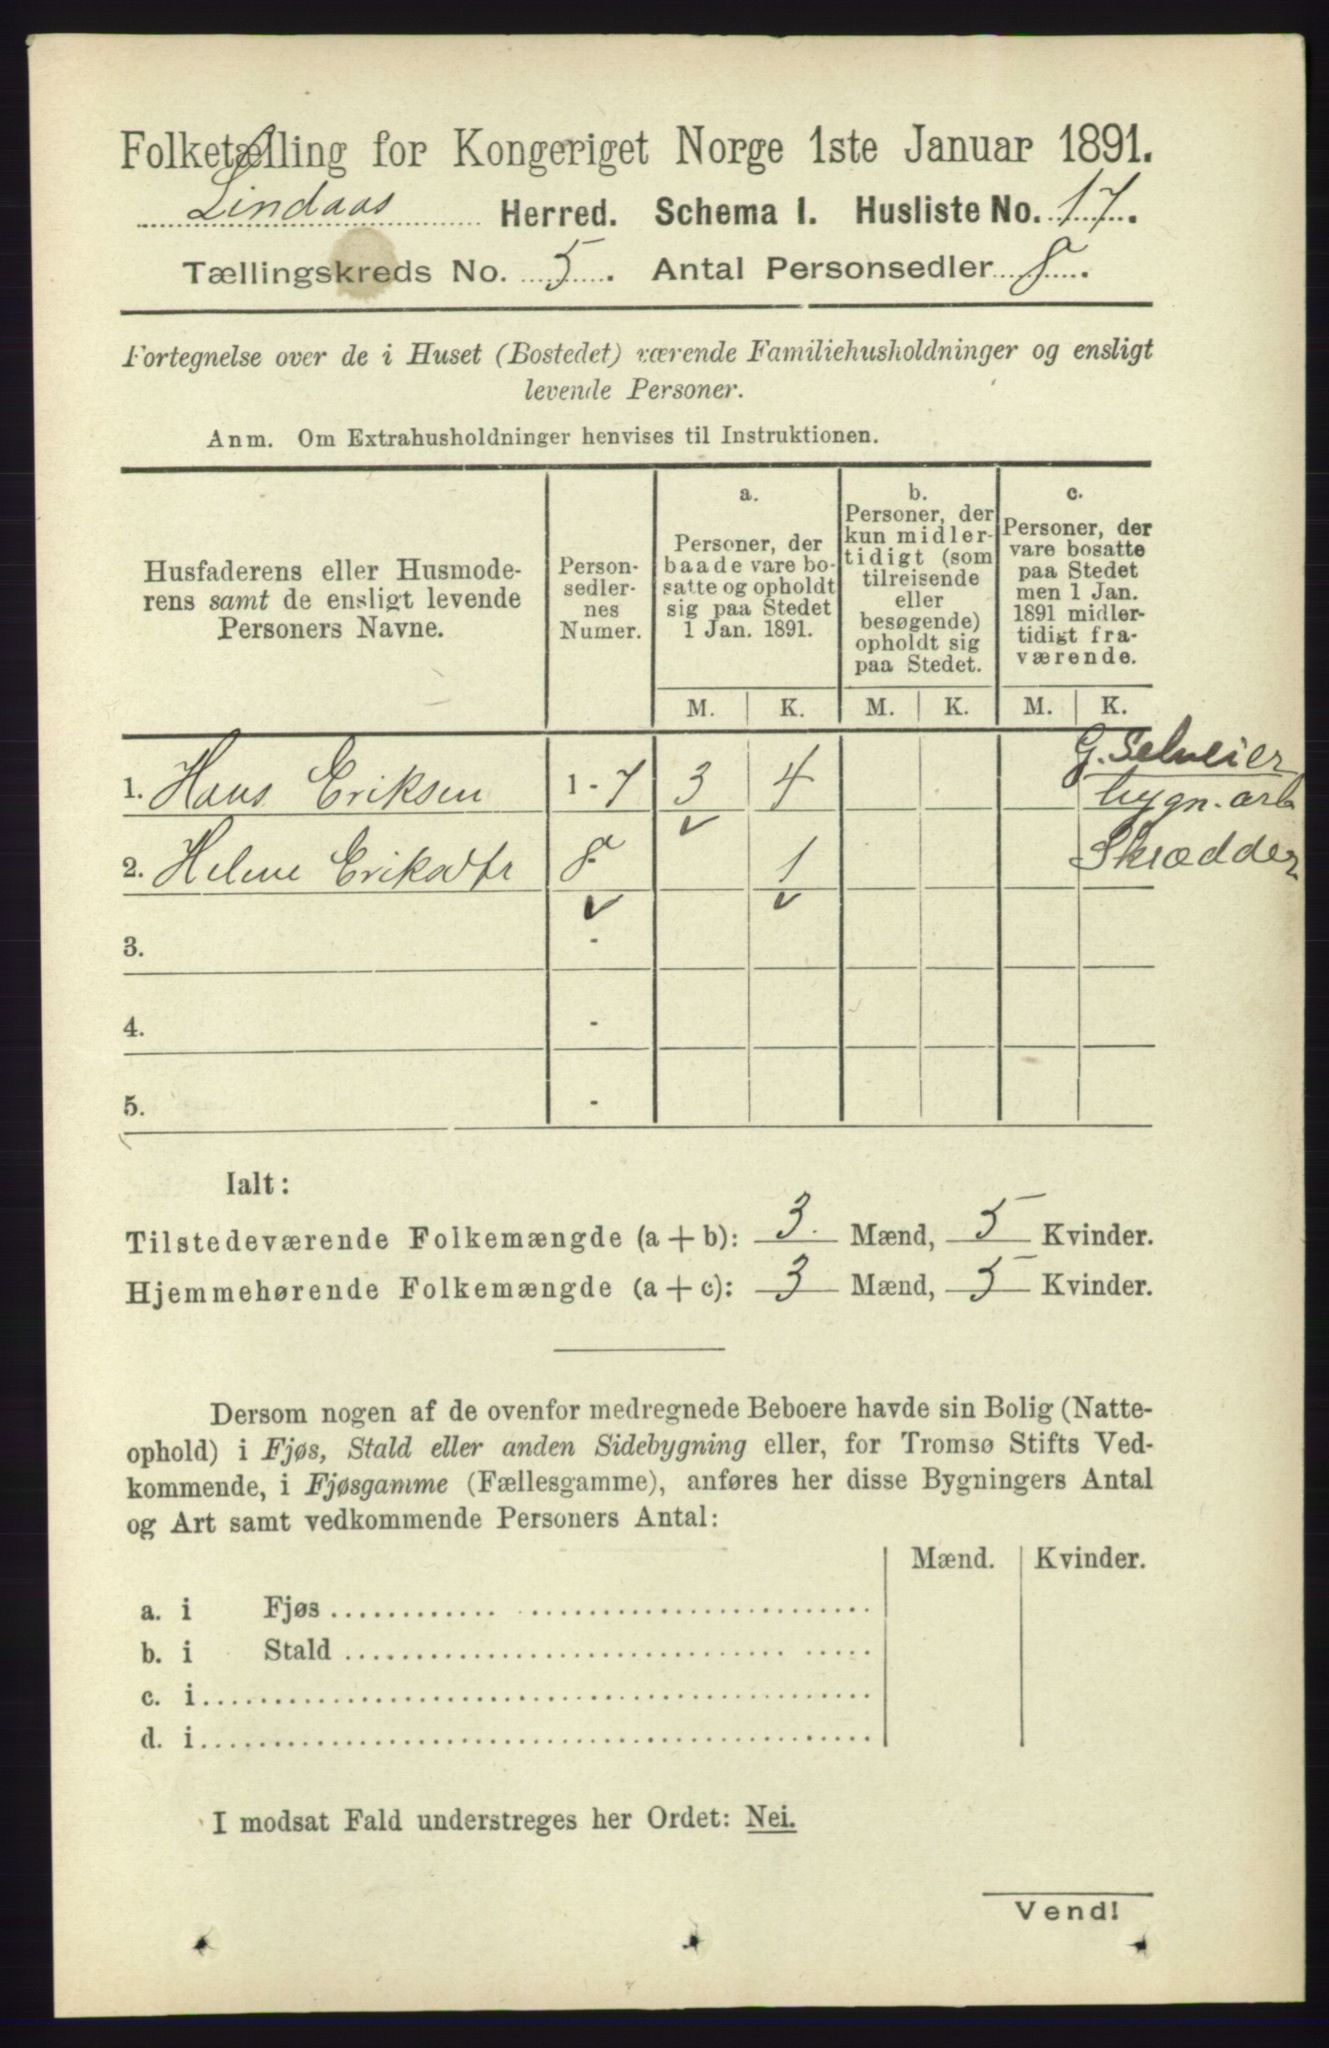 Folketælling for Kongeriget Norge 1ste Januar 1891.
Lindaas Herred. Schema I. Husliste No. 17.
Tællingskreds No. 5. Antal Personsedler 8.
Fortegnelse over de i Huset (Bostedet) værende Familiehusholdninger og ensligt
levende Personer.
Anm. Om Extrahusholdninger henvises til Instruktionen.
Husfaderens eller Husmode-
rens samt de ensligt levende
Personers Navne.
Person-
sedler-
nes
Numer.
a.
Personer, der
baade vare bo-
satte og opholdt
sig paa Stedet
1 Jan. 1891.
b.
Personer, der
kun midler-
tidigt (som
tilreisende
eller
besøgende)
opholdt sig
paa Stedet.
c.
Personer, der
vare bosatte
paa Stedet
men 1 Jan.
1891 midler-
tidigt fra-
værende.
M. K. M. K. M. K.
1. Hans Eriksen 1-7 3 4 G. Selveier
bygn. arb
2. Helene Eriksdtr 8 1 Skrædder
3. -
4. -
5. -
Ialt:
Tilstedeværende Folkemængde (a + b): 3. Mænd, 5 Kvinder.
Hjemmehørende Folkemængde (a + c): 3 Mænd, 5 Kvinder.
Dersom nogen af de ovenfor medregnede Beboere havde sin Bolig (Natte-
ophold) i Fjøs, Stald eller anden Sidebygning eller, for Tromsø Stifts Ved-
kommende, i Fjøsgamme (Fællesgamme), anføres her disse Bygningers Antal
og Art samt vedkommende Personers Antal:
Mænd. Kvinder.
a. i Fjøs
b. i Stald
c. i
d. i
I modsat Fald understreges her Ordet: Nei.
Vend!